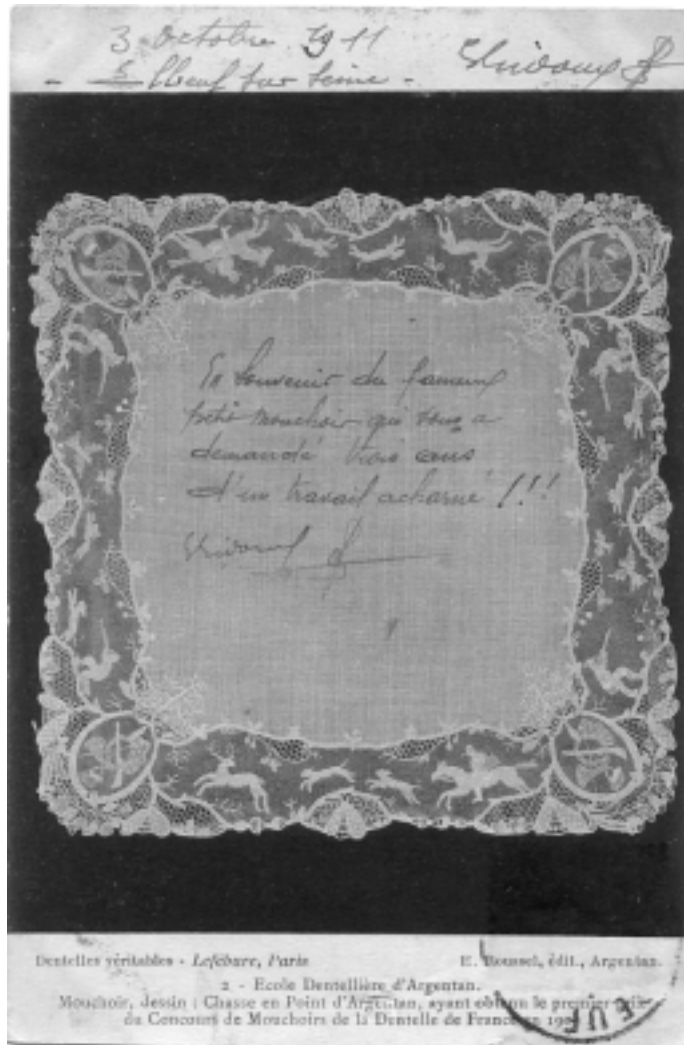 3 octobre 1911
Elbeuf sur Seine -
En souvenir du fameux
petit mouchoir qui vous a
demandé trois ans
d'un travail acharné !!!
Dentelles véritables - Lefébure, Paris
E. Roussel, édit., Argentan.
2 - Ecole Dentellière d'Argentan.
Mouchoir, dessin : Chasse en Point d'Argentan, ayant obtenu le premier prix
du Concours de Mouchoirs de la Dentelle de France en
EUF